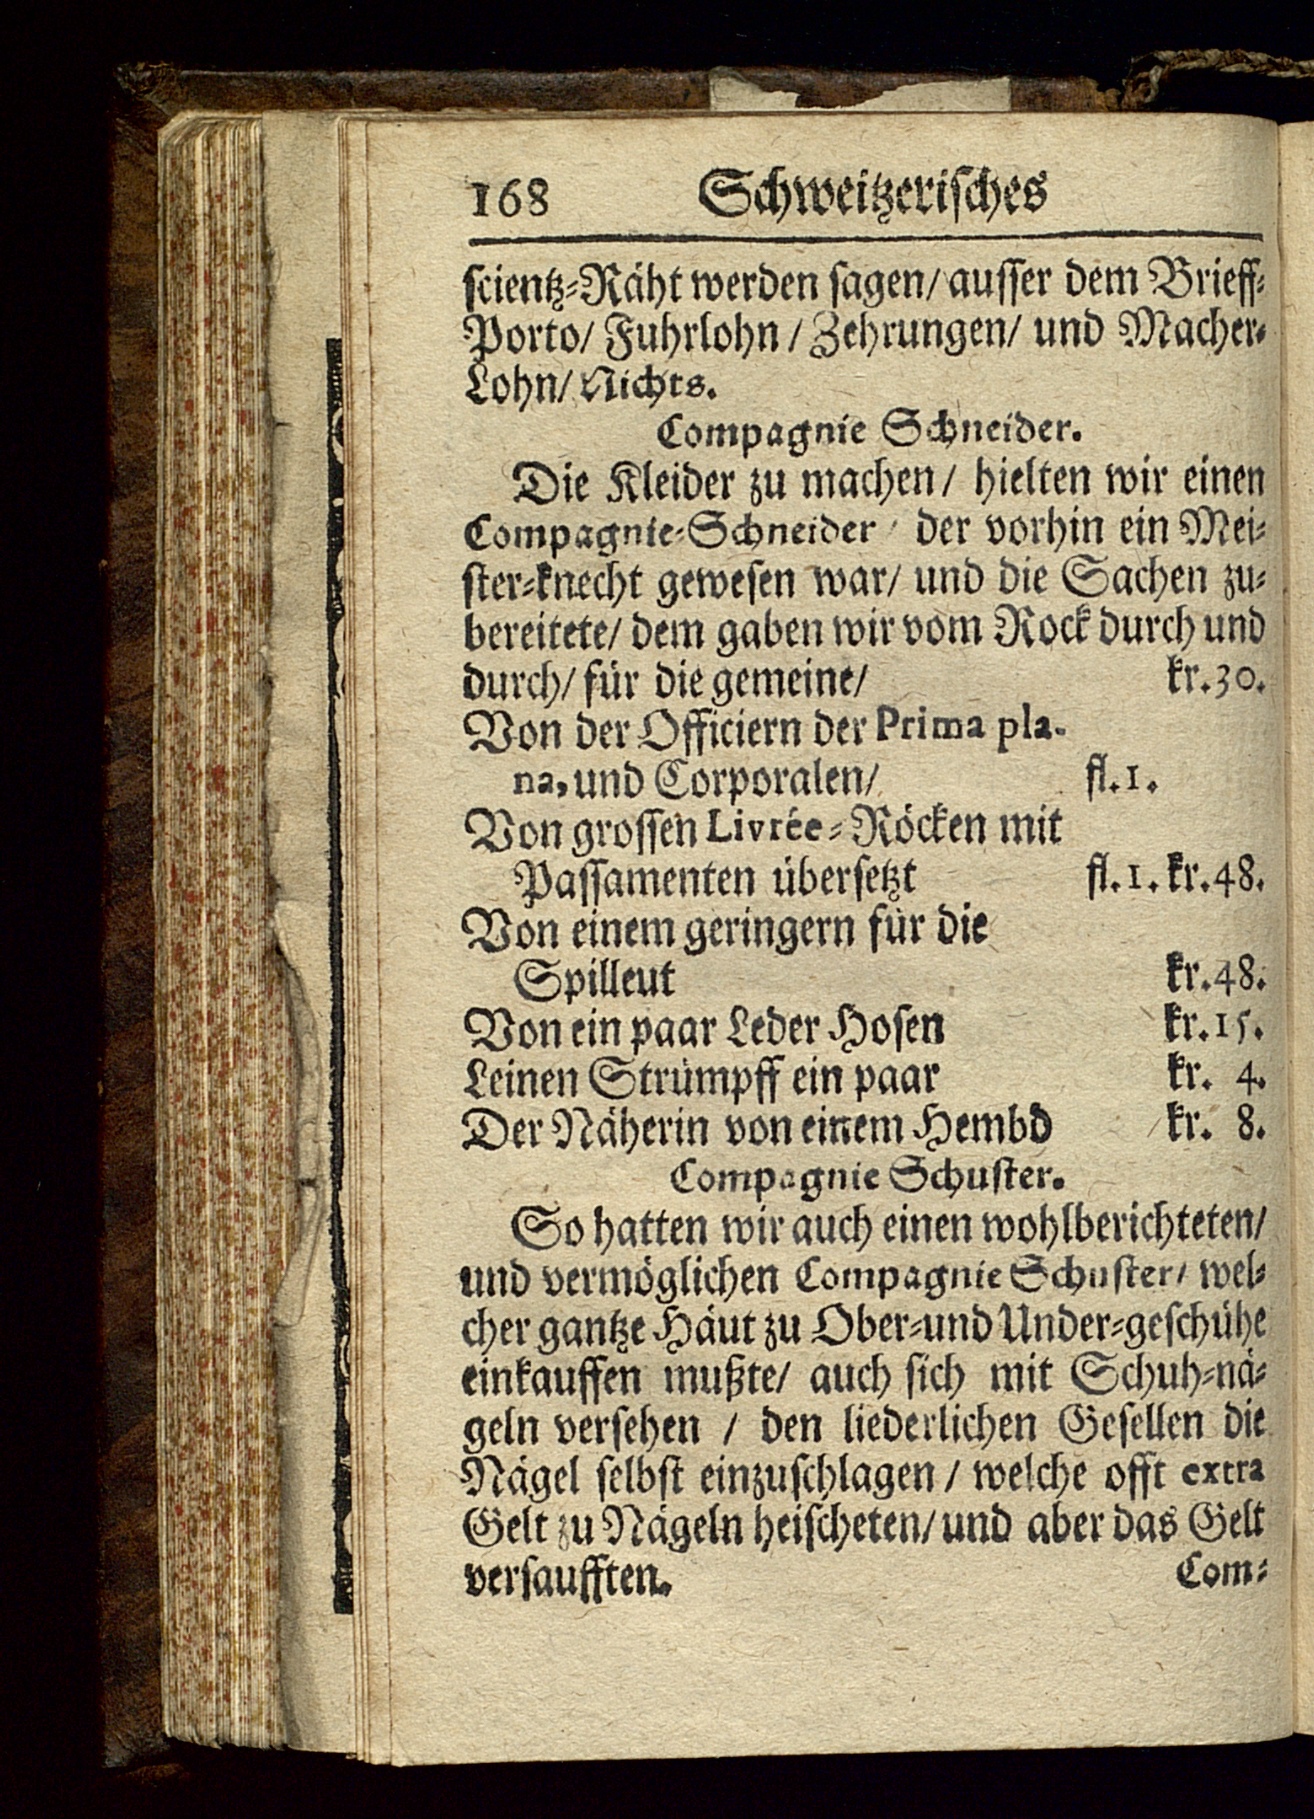 168 Schweitzerisches
scientz-Räht werden sagen/ ausser dem Brieff-
Porto/ Fuhrlohn / Zehrungen/ und Macher-
Lohn/ Nichts.
Compagnie Schneider.
Die Kleider zu machen/ hielten wir einen
Compagnie-Schneider / der vorhin ein Mei-
ster-knecht gewesen war/ und die Sachen zu-
bereitete/ dem gaben wir vom Rock durch und
durch/ für die gemeine/ kr.30.
Von der Officiern der Prima pla-
na, und Corporalen/ fl.1.
Von grossen Livrée-Röcken mit
Passamenten übersetzt fl.1. kr.48.
Von einem geringern für die
Spilleut kr.48.
Von ein paar Leder Hosen kr.15.
Leinen Strümpff ein paar kr. 4.
Der Näherin von einem Hembd kr. 8.
Compagnie Schuster.
So hatten wir auch einen wohlberichteten/
und vermöglichen Compagnie Schuster/ wel-
cher gantze Häut zu Ober-und Under-geschühe
einkauffen mußte/ auch sich mit Schuh-nä-
geln versehen / den liederlichen Gesellen die
Nägel selbst einzuschlagen / welche offt extra
Gelt zu Nägeln heischeten/ und aber das Gelt
versaufften. Com-